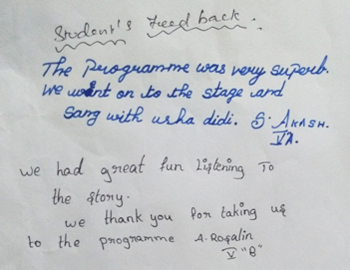 Student's Feed back.
The Programme was very superb.
We went on to the stage and
Sang with usha didi. S. AKASH.
V A.
we had great fun Listening To
the story.
we thank you for taking us
to the programme A. Rosalin
V "B"